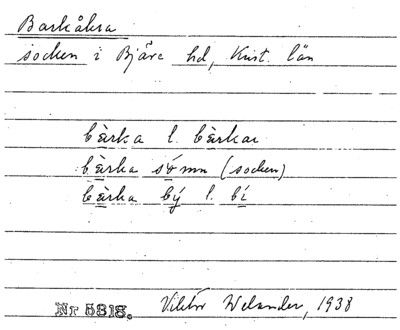 Barkåkra
socken i Bjäre hd, Krist. län
bàrka l. bàrkar
bàrka sómn (socken)
bàrka bý l. bí
Nr 5818. Viktor Welander, 1938